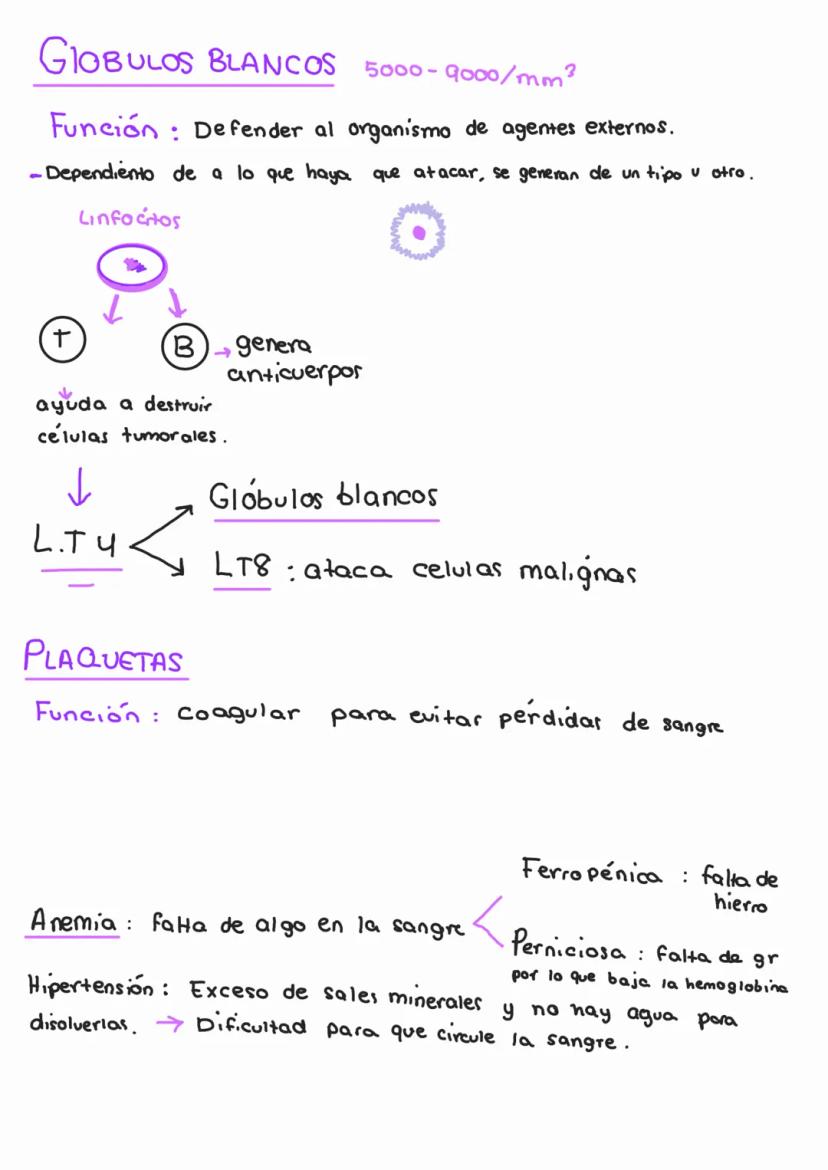 GLOBULOS BLANCOS 5000-9000/mm³
Función : Defender al organismo de agentes externos.
- Dependiento de a lo que haya que atacar, se generan de un tipo u otro.
Linfocitos
T
B → genera
anticuerpos
ayuda a destruir
células tumorales.
L.T4
Glóbulos blancos
LT8 : ataca celulas malignas
PLAQUETAS
Función : coagular para evitar pérdidas de sangre
Anemia : falta de algo en la sangre
Ferropénica : falta de
hierro
Perniciosa : falta de gr
por lo que baja la hemoglobina
Hipertensión : Exceso de sales minerales y no hay agua para
disolverlas. → Dificultad para que circule la sangre.